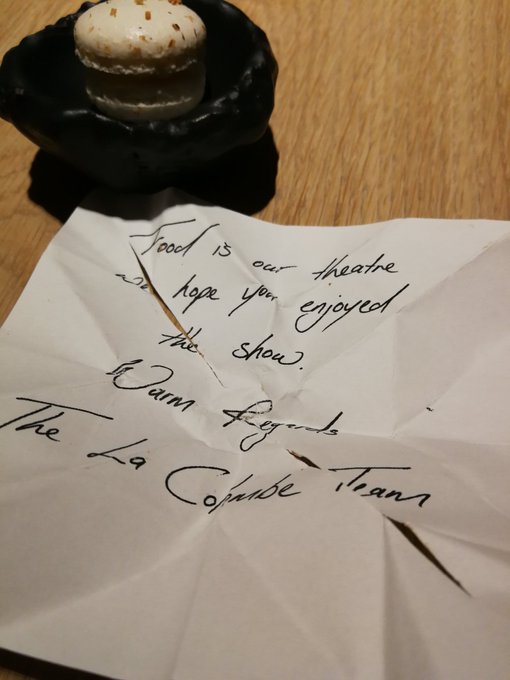 Food is our theatre
we hope you enjoyed
the show.
Warm Regards
The La Colombe Team